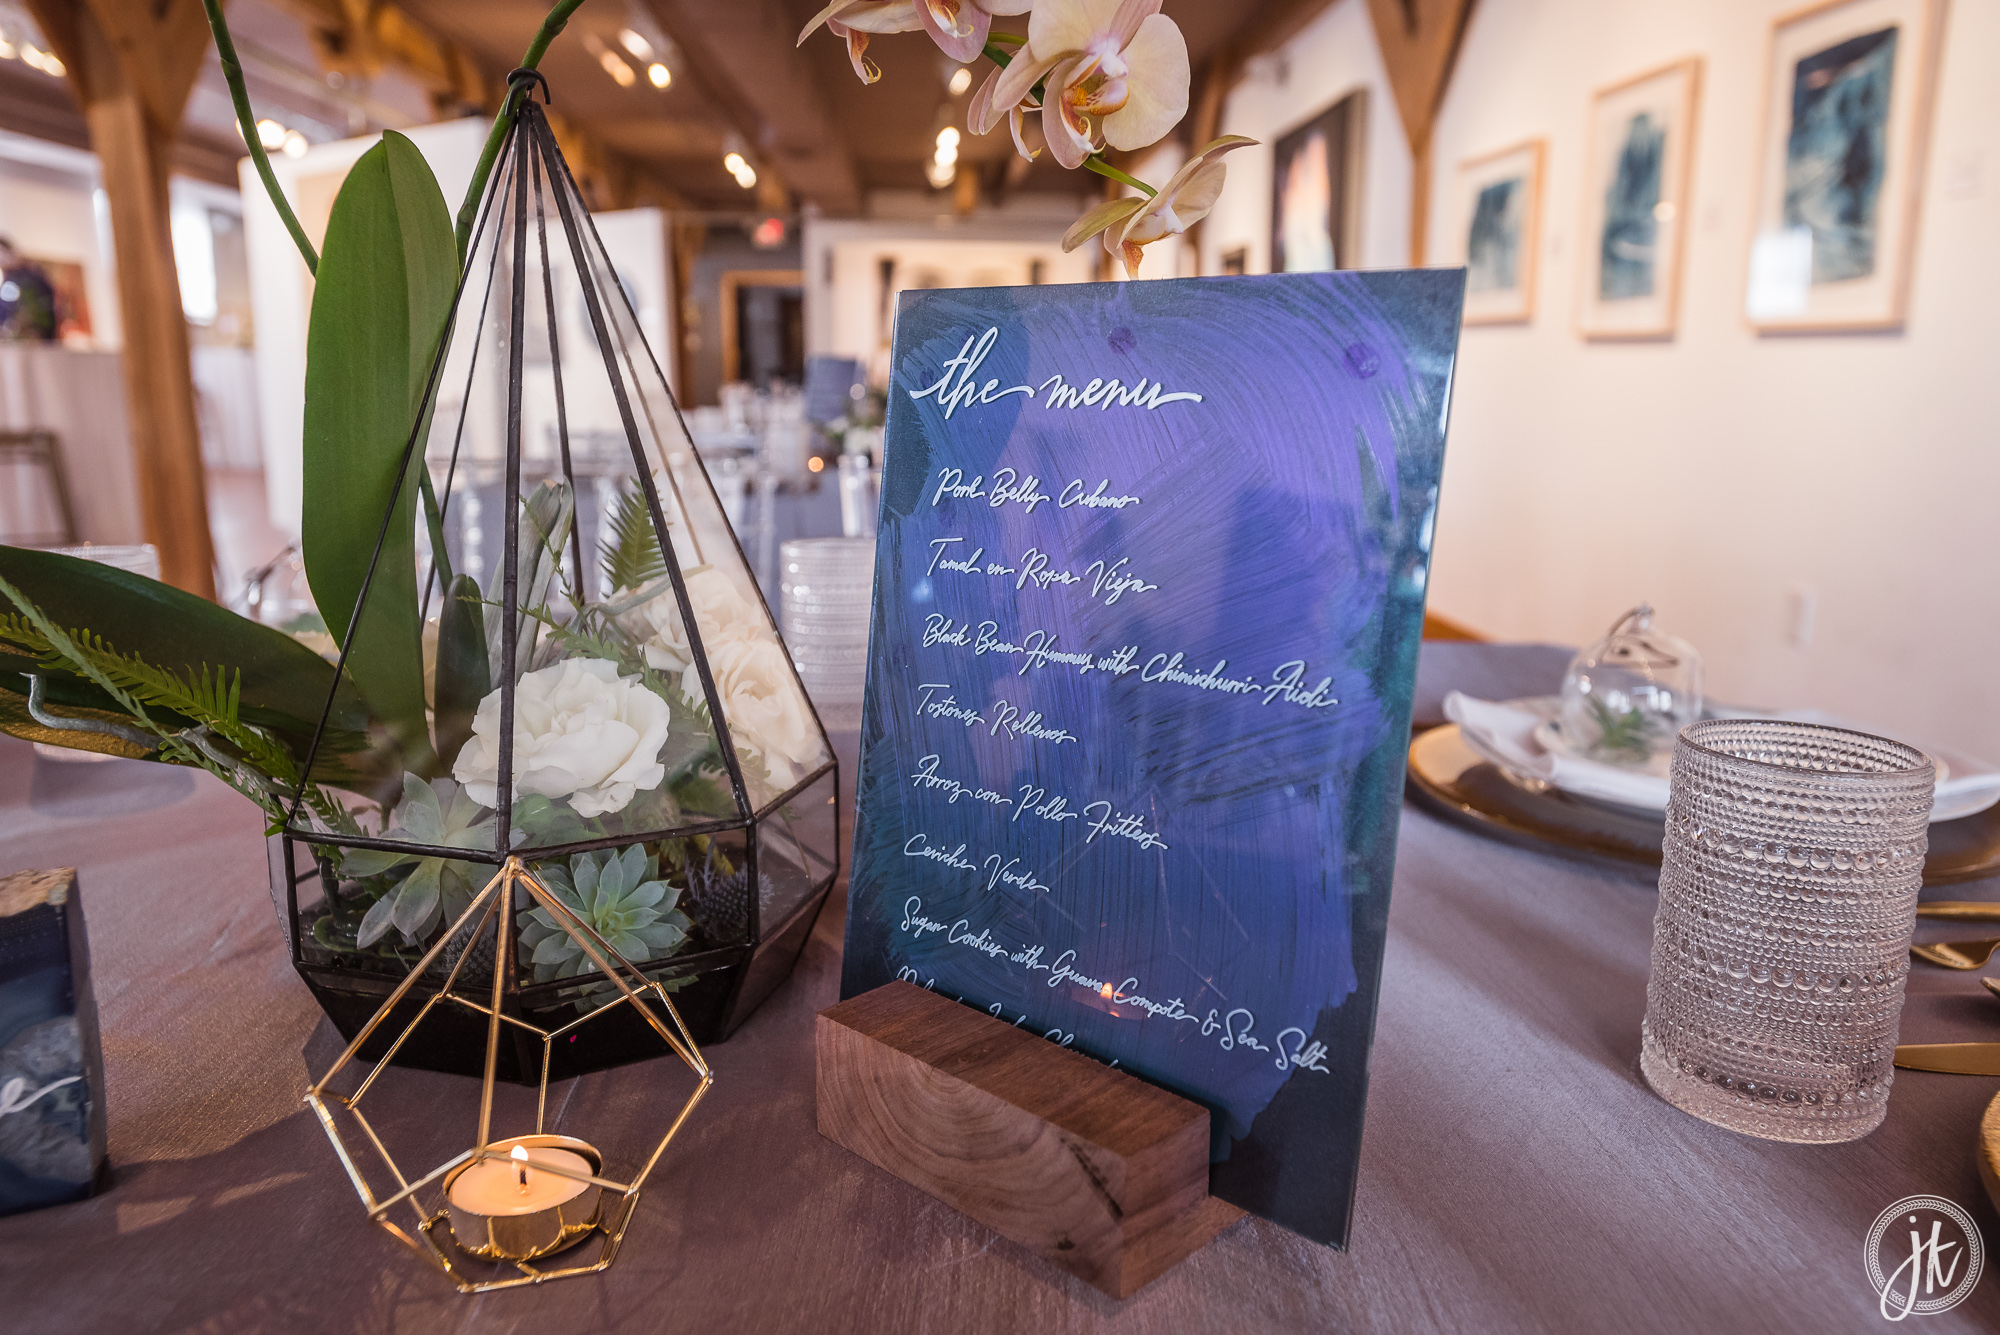 the menu
Pork Belly Cubano
Tamal en Ropa Vieja
Black Bean Hummus with Chimichurri Aioli
Tostones Rellenos
Arroz con Pollo Fritters
Ceviche Verde
Sugar Cookies with Guava Compote & Sea Salt
jk